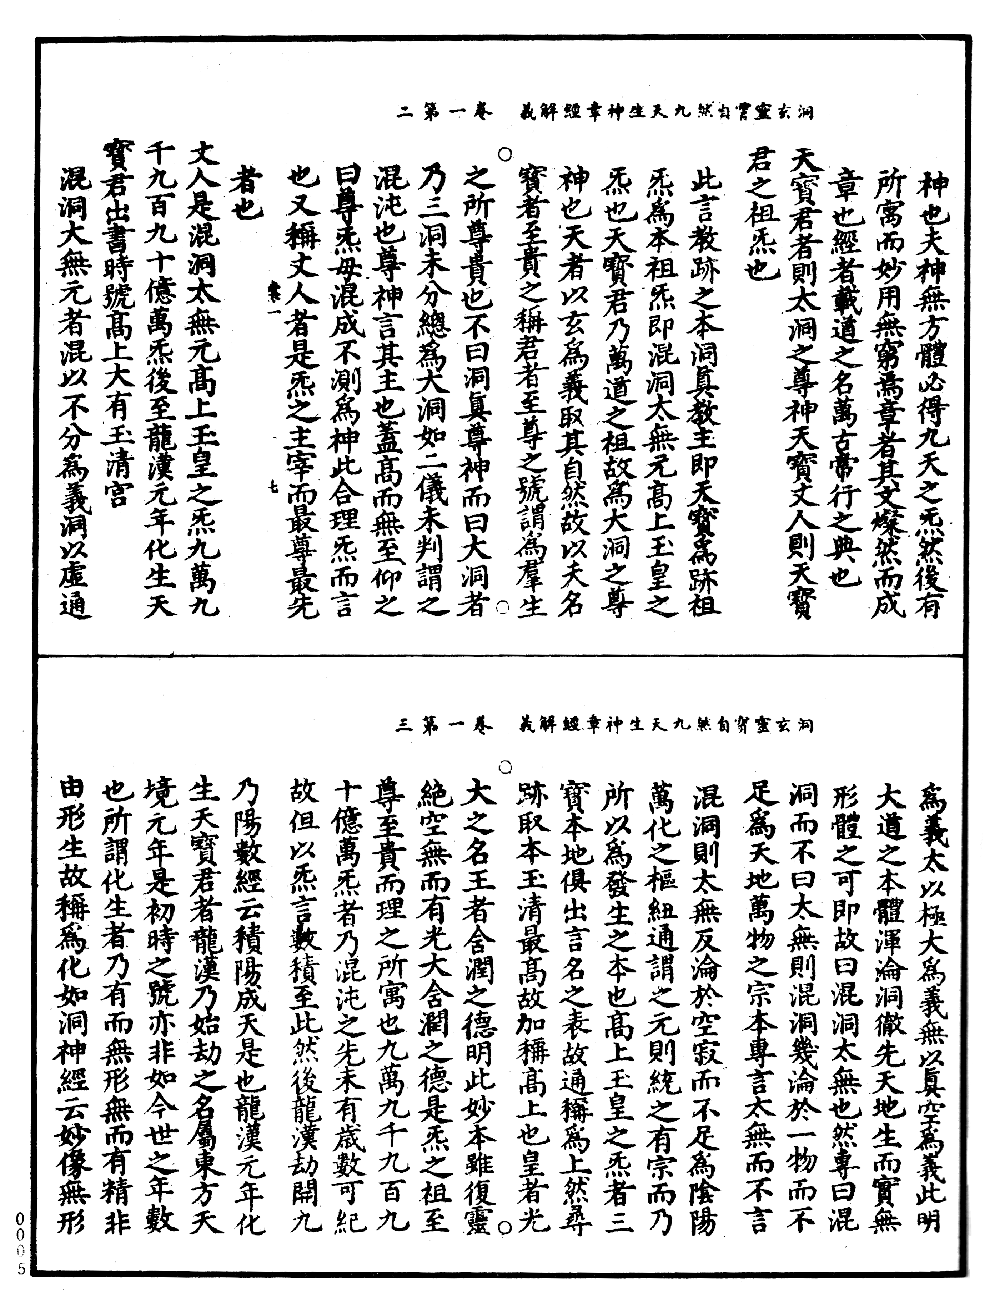 洞玄靈寶自然九天生神章經解義　卷一第二
神也夫神無方體必得九天之炁然後有
所寓而妙用無窮焉章者其文燦然而成
章也經者載道之名萬古常行之典也
天寶君者則大洞之尊神天寶丈人則天寶
君之祖炁也
此言教跡之本洞眞教主即天寶爲跡祖
炁爲本祖炁即混洞太無元高上玉皇之
炁也天寶君乃萬道之祖故爲大洞之尊
神也天者以玄爲義取其自然故以天名
寶者至貴之稱君者至尊之號謂爲羣生
之所尊貴也不曰洞眞尊神而曰大洞者
乃三洞未分總爲大洞如二儀未判謂之
混沌也尊神言其主也蓋高而無至仰之
曰尊炁母混成不測爲神此合理炁而言
也又稱丈人者是炁之主宰而最尊最先
者也
丈人是混洞太無元高上玉皇之炁九萬九
千九百九十億萬炁後至龍漢元年化生天
寶君出書時號高上大有玉清宮
混洞太無元者混以不分爲義洞以虛通
洞玄靈寶自然九天生神章經解義　卷一第三
爲義太以極大爲義無以眞空爲義此明
大道之本體渾淪洞徹先天地生而實無
形體之可即故曰混洞太無也然專曰混
洞而不曰太無則混洞幾淪於一物而不
足爲天地萬物之宗本專言太無而不言
混洞則太無反淪於空寂而不足爲陰陽
萬化之樞紐通謂之元則統之有宗而乃
所以爲發生之本也高上玉皇之炁者三
寶本地俱出言名之表故通稱爲上然尋
跡取本玉清最高故加稱高上也皇者光
大之名王者含潤之德明此妙本雖復靈
絕空無而有光大含潤之德是炁之祖至
尊至貴而理之所寓也九萬九千九百九
十億萬炁者乃混沌之先未有歲數可紀
故但以炁言數積至此然後龍漢劫開九
乃陽數經云積陽成天是也龍漢元年化
生天寶君者龍漢乃始劫之名屬東方天
境元年是初時之號亦非如今世之年數
也所謂化生者乃有而無形無而有精非
由形生故稱爲化如洞神經云妙像無形
0005